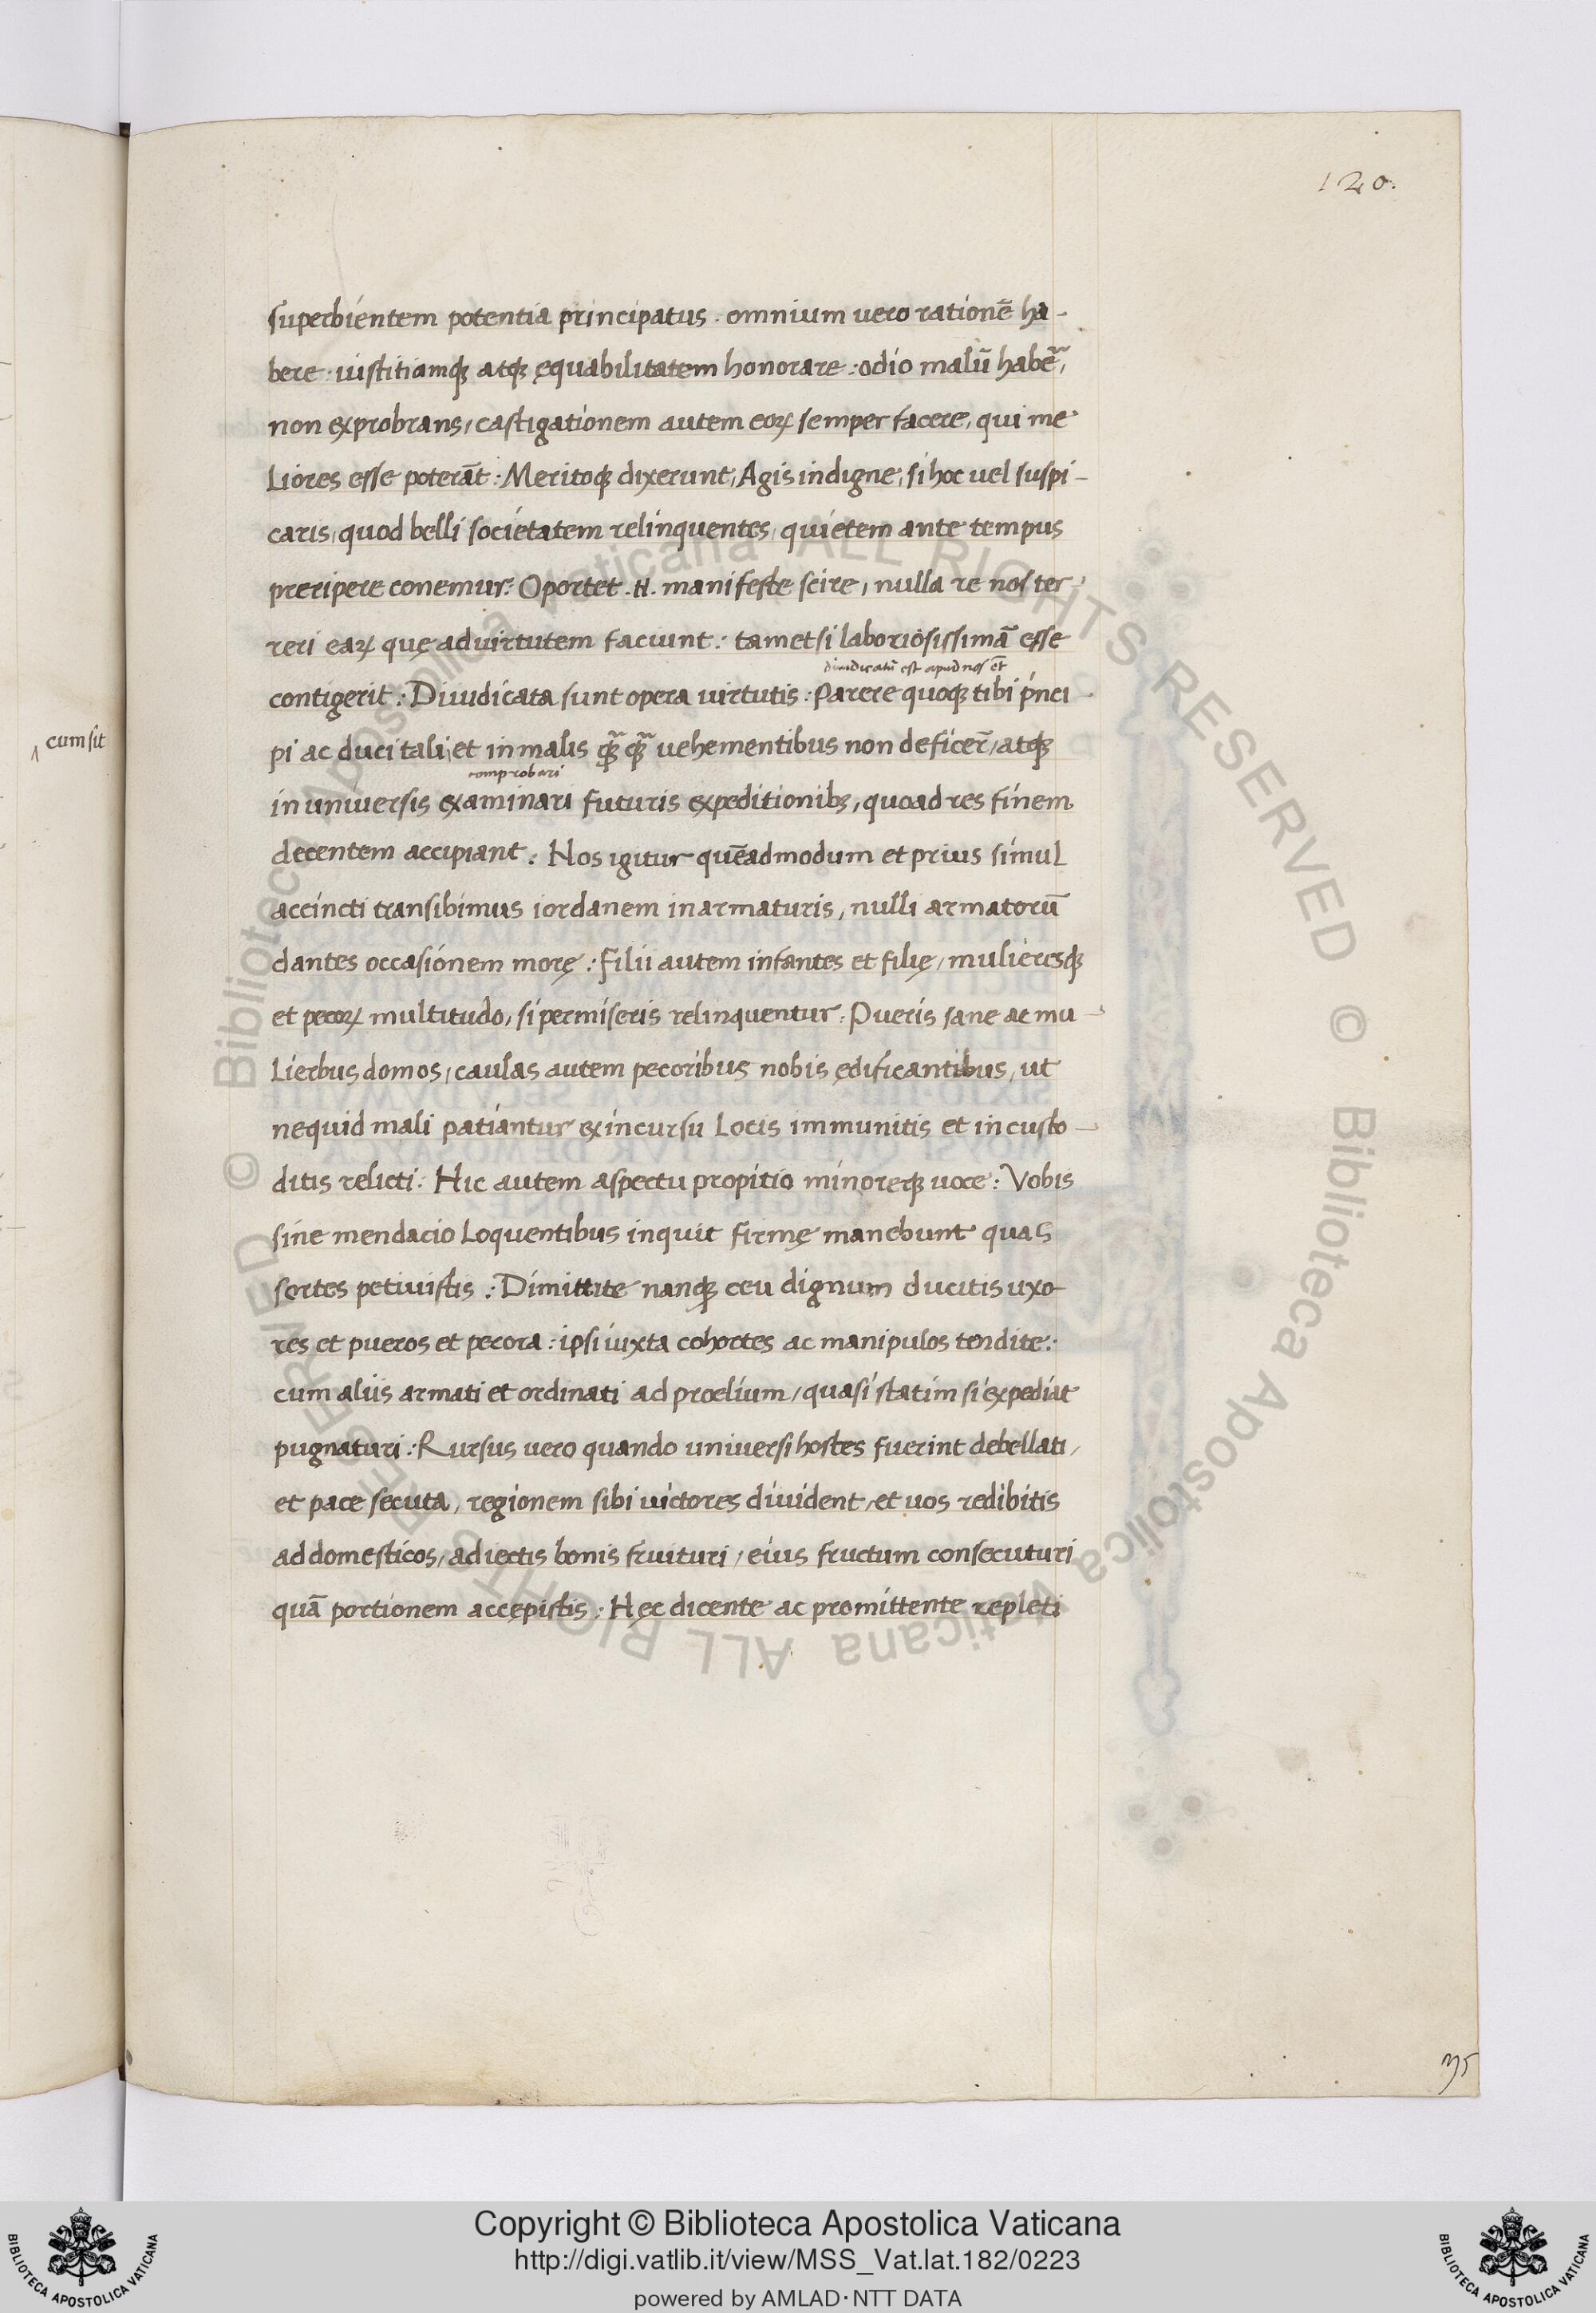 120.
superbientem potentia principatus. omnium vero rationē ha-
bere. iustitiamqꝫ atqꝫ ęquabilitatem honorare: odio malū habe͂,
non exprobrans, castigationem autem eoꝝ semper facere, qui me
liores esse poterāt: Meritoqꝫ dixerunt, Agis indigne, si hoc vel suspi-
caris, quod belli societatem relinquentes, quietem ante tempus
preripere conemur: Oportet .N. manifeste scire, nulla re nos ter-
reri eaꝝ quę ad virtutem faciunt: tametsi laboriosissimā esse
diiudicatū est apud nos et̄
contigerit: Diiudicata sunt opera virtutis: Parere quoqꝫ tibi pⁱnci-
pi ac duci tali, et in malis qꝫ͂ qꝫ͂ vehementibus non deficer̄, atqꝫ
comprobari
in universis examinari futuris expeditionibꝫ, quoad res finem
cum sit
decentem accipiant. Nos igitur quēadmodum et prius simul
accincti transibimus iordanem in armaturis, nulli armatorū
dantes occasionem morę: Filii autem infantes et filię, mulieresqꝫ
et pecoꝝ multitudo, si permiseris relinquentur: Pueris sane ac mu-
lierbus domos, caulas autem pecoribus nobis ędificantibus, ut
nequid mali patiantur ex incursu locis immunitis et incusto-
ditis relicti: Hic autem aspectu propitio minoreqꝫ voce: Vobis
sine mendacio loquentibus inquit firmę manebunt quas
sortes petivistis: Dimittite nanqꝫ ceu dignum ducitis uxo-
res et pueros et pecora: ipsi iuxta cohortes ac manipulos tendite:
cum aliis armati et ordinati ad proelium, quasi statim si expediat
pugnaturi: Rursus vero quando universi hostes fuerint debellati,
et pace secuta, regionem sibi victores divident, et vos redibitis
ad domesticos, adiectis bonis fruituri, eius fructum consecuturi
quā portionem accępistis: Hęc dicente ac promittente repleti
© Biblioteca Apostolica Vaticana ALL RIGHTS RESERVED
© Biblioteca Apostolica Vaticana ALL RIGHTS RESERVED
Copyright © Biblioteca Apostolica Vaticana
http://digi.vatlib.it/view/MSS_Vat.lat.182/0223
powered by AMLAD·NTT DATA
BIBLIOTECA APOSTOLICA VATICANA
BIBLIOTECA APOSTOLICA VATICANA